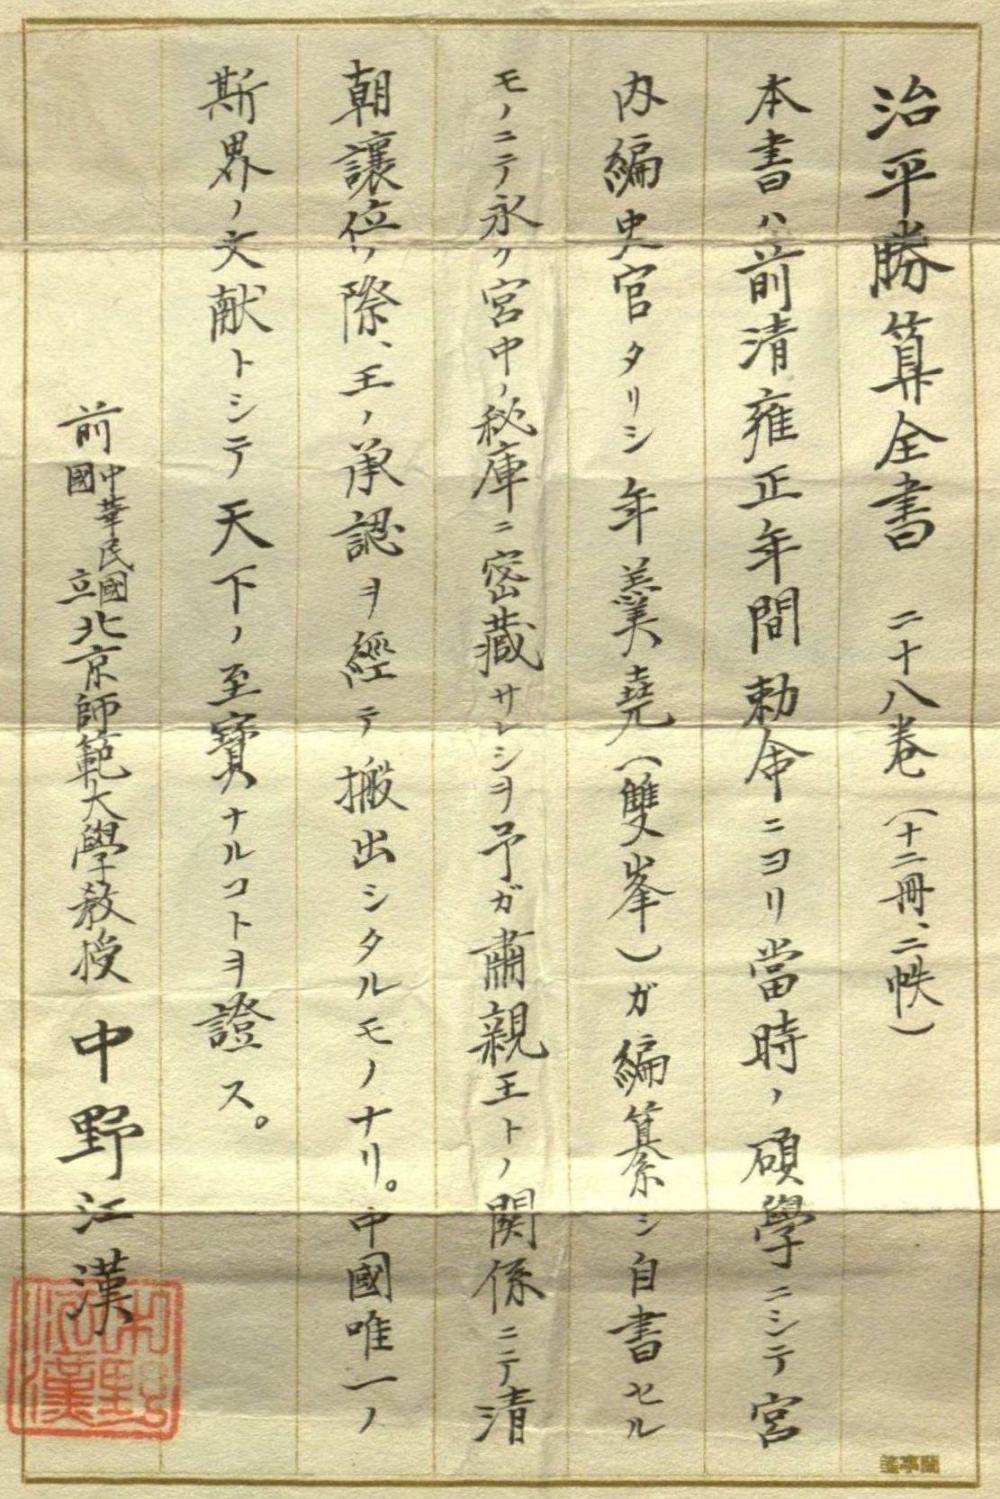 治平勝算全書 二十八巻(十二冊、二帙)
本書ハ前清雍正年間勅命ニヨリ當時ノ碩學ニシテ宮
内編史官タリシ年羹堯(雙峯)ガ編纂シ自書セル
モノニテ永ク宮中ノ秘庫ニ密藏サレシヲ予ガ肅親王トノ関係ニテ清
朝譲位ノ際、王ノ承認ヲ經テ搬出シタルモノナリ。中國唯一ノ
斯界ノ文献トシテ天下ノ至寶ナルコトヲ證ス。
前中華民國國立北京師範大學教授 中野江漢
中野江漢
蘭亭箋